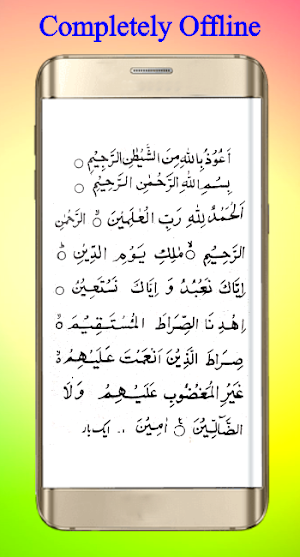 Completely Offline
اَعُوْذُ بِاللّٰهِ مِنَ الشَّيْطٰنِ الرَّجِيْمِ ○
بِسْمِ اللّٰهِ الرَّحْمٰنِ الرَّحِيْمِ ○
اَلْحَمْدُ لِلّٰهِ رَبِّ الْعٰلَمِيْنَ ○ الرَّحْمٰنِ
الرَّحِيْمِ ○ مٰلِكِ يَوْمِ الدِّيْنِ ○
اِيَّاكَ نَعْبُدُ وَ اِيَّاكَ نَسْتَعِيْنُ ○
اِهْدِنَا الصِّرَاطَ الْمُسْتَقِيْمَ ○
صِرَاطَ الَّذِيْنَ اَنْعَمْتَ عَلَيْهِمْ ○
غَيْرِ الْمَغْضُوْبِ عَلَيْهِمْ وَلَا
الضَّآلِّيْنَ ○ اٰمِيْنَ ۔۔ ایک بار